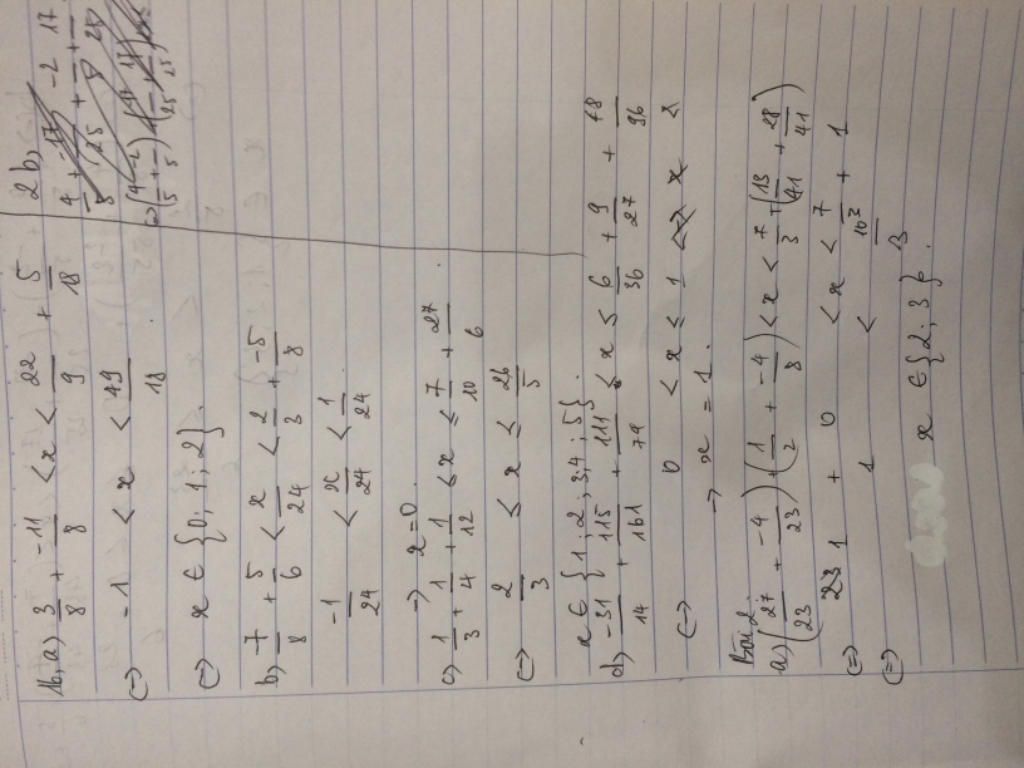 1b, a) 3/8 + -11/8 < x < 22/9 + 5/18
<-> -1 < x < 49/18
<-> x ∈ {0; 1; 2}
b) -7/8 + 5/6 < x/24 < 2/3 + -5/8
-1/24 < x/24 < 1/24
-> x = 0
c) 1/3 + 1/4 + 1/12 < x ≤ 7/10 + 27/6
<-> 2/3 < x ≤ 26/5
x ∈ {1; 2; 3; 4; 5}
d) -31/14 + 115/161 + 111/74 < x ≤ 6/36 + 9/27 + 48/96
<-> 0 < x ≤ 1
-> x = 1.
Bài 2:
a) (27/23 + -4/23) + (1/2 + -4/8) < x < 7/3 + (13/41 + 28/41)
<=> 1 + 0 < x < 7/3 + 1
<=> 1 <
x ∈ {2; 3}
2b,
4/5 + -2/5 + 17